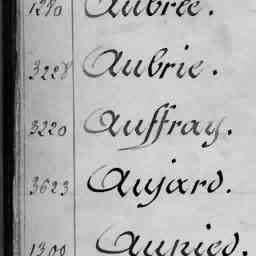 1280 Aubrée.
3228 Aubrie.
3220 Auffray.
3623 Aujard.
1300